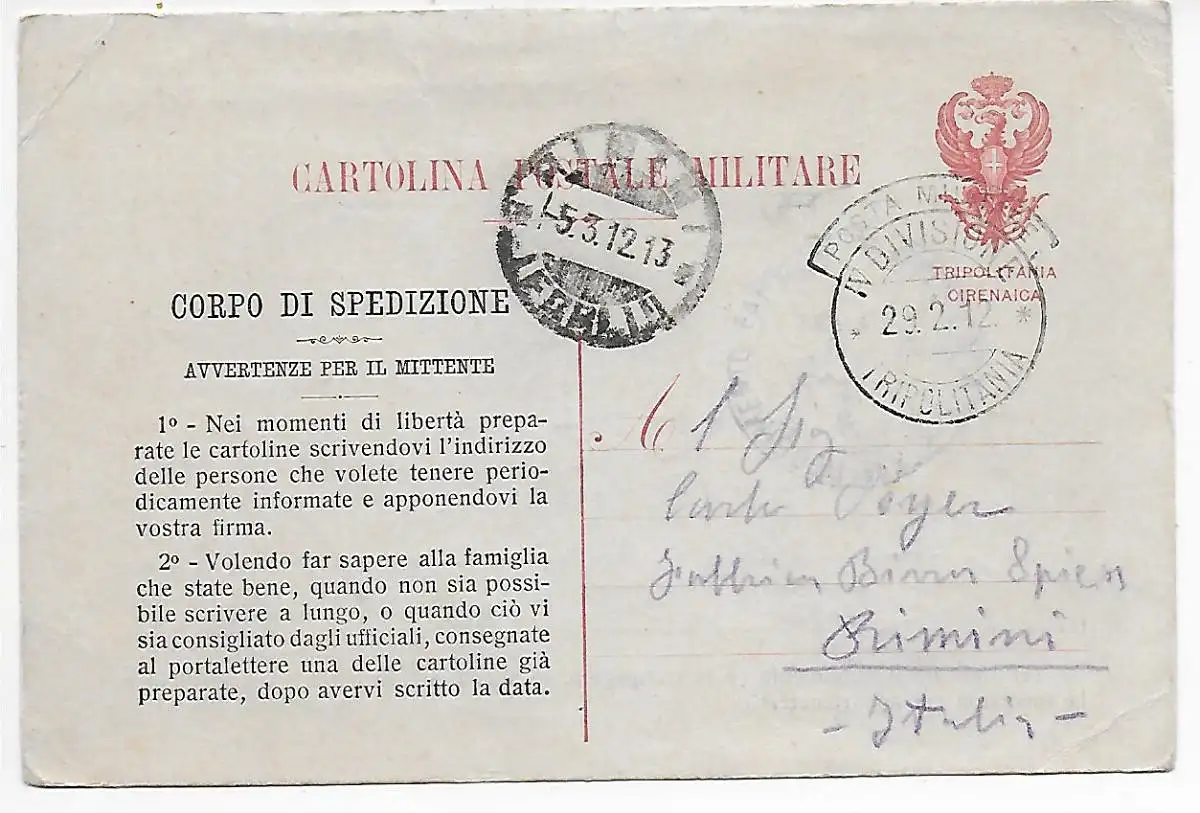 CARTOLINA POSTALE MILITARE
5.3.12.13
POSTA MILITARE
IV DIVISIONE
29.2.12.
TRIPOLITANIA
TRIPOLITANIA
CIRENAICA
CORPO DI SPEDIZIONE
AVVERTENZE PER IL MITTENTE
1º - Nei momenti di libertà prepa-
rate le cartoline scrivendovi l'indirizzo
delle persone che volete tenere perio-
dicamente informate e apponendovi la
vostra firma.
2º - Volendo far sapere alla famiglia
che state bene, quando non sia possi-
bile scrivere a lungo, o quando ciò vi
sia consigliato dagli ufficiali, consegnate
al portalettere una delle cartoline già
preparate, dopo avervi scritto la data.
Al Sig
Carlo
Birra Spiess
Rimini
- Italia -